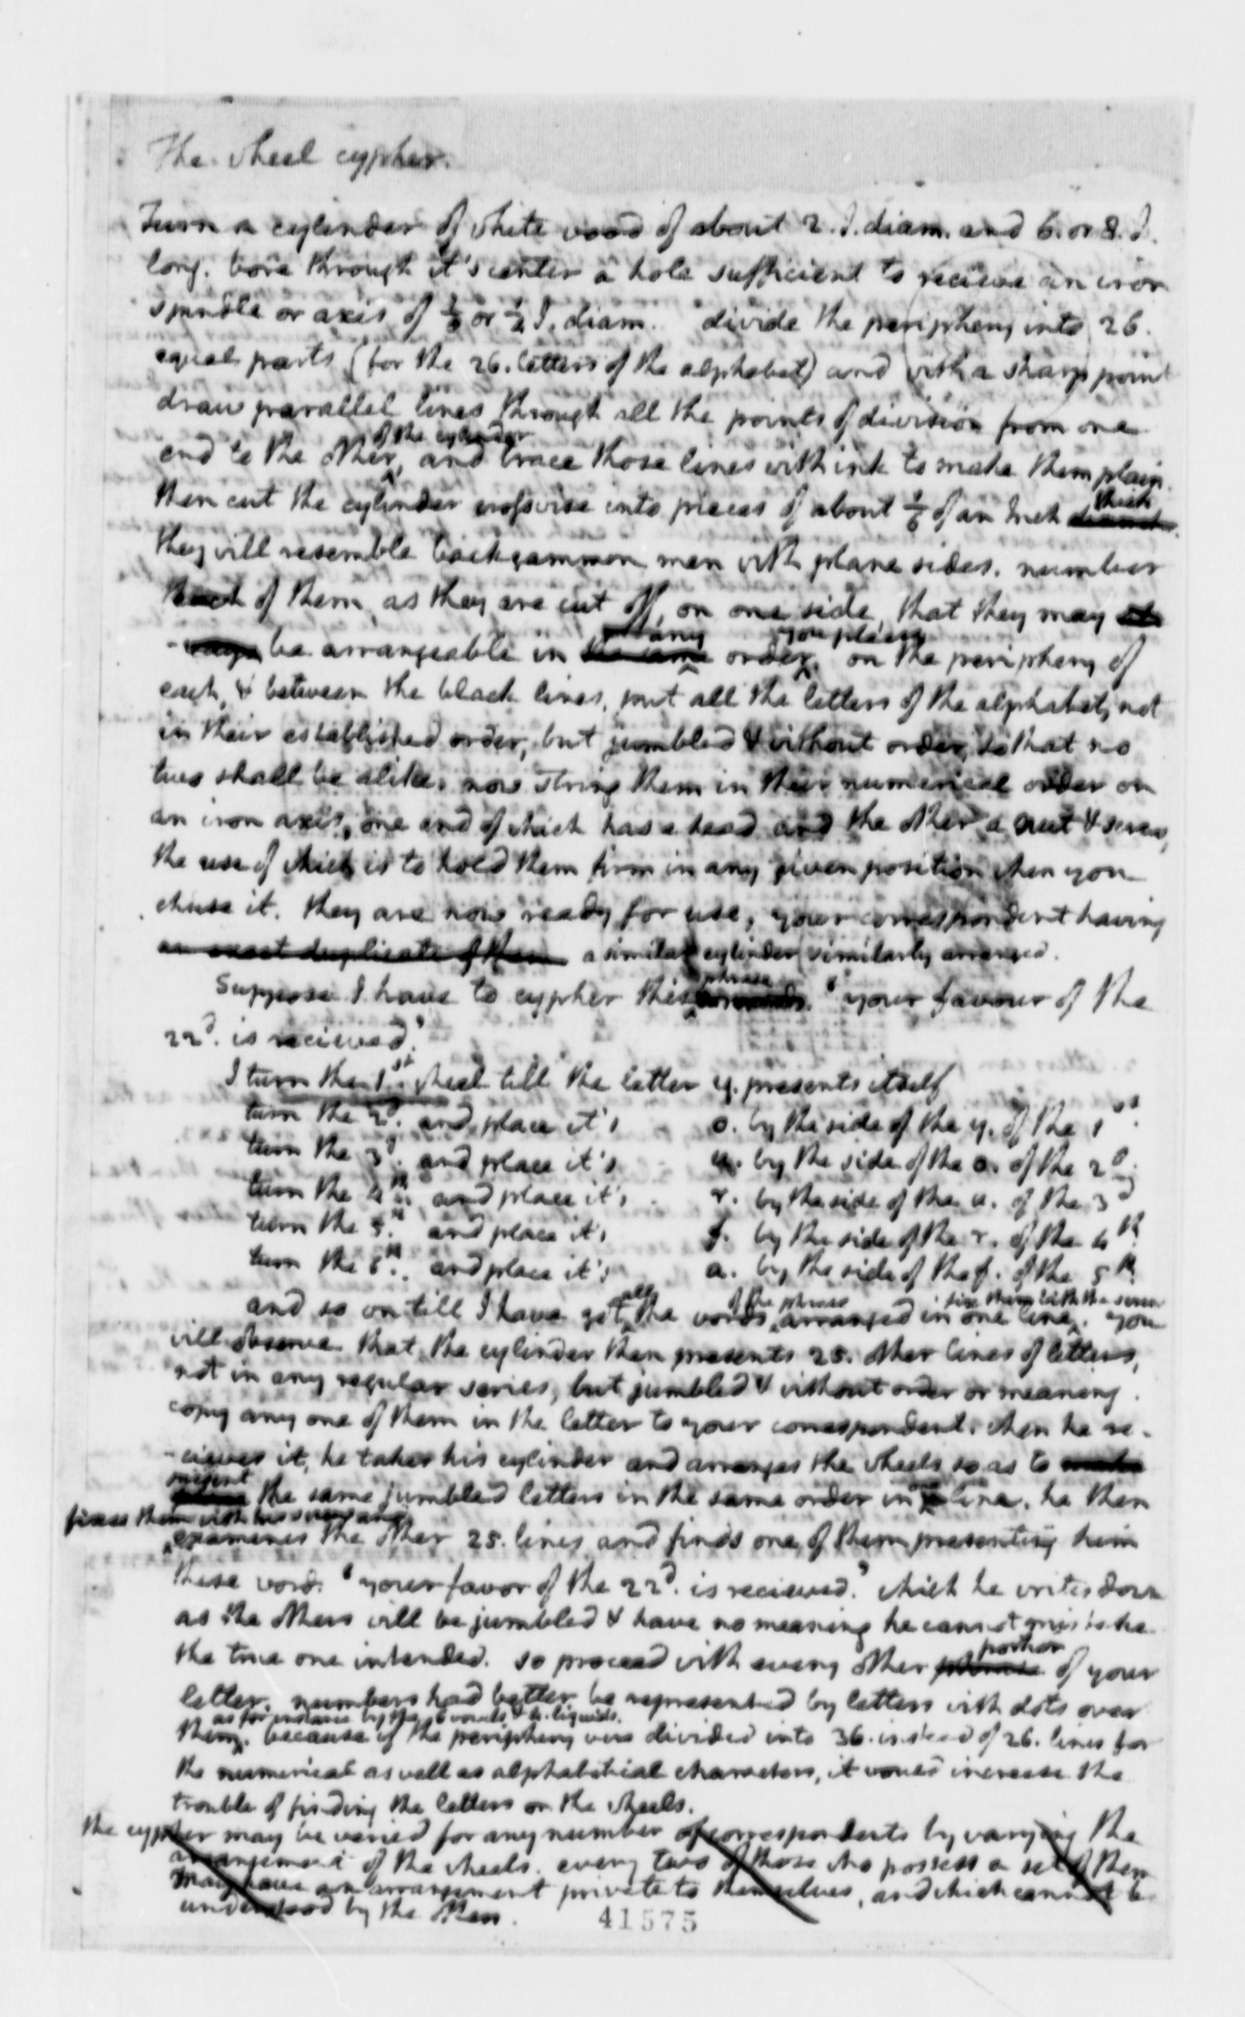 The wheel cypher.
Turn a cylinder of white wood of about 2. I. diam. and 6. or 8. I.
long. bore through it's center a hole sufficient to recieve an iron
spindle or axis of ⅛ or ¼ I. diam. divide the periphery into 26.
equal parts (for the 26. letters of the alphabet) and with a sharp point
draw parallel lines through all the points of division from one
of the cylinder
end to the other, and trace those lines with ink to make them plain.
then cut the cylinder crosswise into pieces of about ⅙ of an Inch thick
they will resemble backgammon men with plane sides. number
of them, as they are cut off, on one side, that they may
any you please
be arrangeable in order. on the periphery of
each, & between the black lines, put all the letters of the alphabet, not
in their established order, but jumbled & without order, so that no
two shall be alike. now string them in their numerical order on
an iron axis, one end of which has a head and the other a nut & screw,
the use of which is to hold them firm in any given position when you
chuse it. they are now ready for use, your correspondent having
an exact duplicate of them a similar cylinder, similarly arranged.
phrase
Suppose I have to cypher this 'your favour of the
22d. is recieved.'
I turn the 1st. wheel till the letter y. presents itself
turn the 2d. and place it's o. by the side of the y. of the 1st.
turn the 3d. and place it's u. by the side of the o. of the 2d.
turn the 4th. and place it's r. by the side of the u. of the 3d
turn the 5th. and place it's f. by the side of the r. of the 4th.
turn the 6th. and place it's a. by the side of the f. of the 5th.
all of the phrase fix them with the screw
and so on till I have got the words arranged in one line. you
will observe that the cylinder then presents 25. other lines of letters,
not in any regular series, but jumbled & without order or meaning.
copy any one of them in the letter to your correspondent. when he re-
-cieves it, he takes his cylinder and arranges the wheels so as to
present the same jumbled letters in the same order in line. he then
fixes them with his screw and
examines the other 25. lines and finds one of them presenting him
these word. 'your favor of the 22d. is recieved.' which he writes down
as the others will be jumbled & have no meaning he cannot mistake
the true one intended. so proceed with every other portion of your
letter. numbers had better be represented by letters with dots over
as for instance by the 6 vowels & 4. liquids.
them. because if the periphery were divided into 36. instead of 26. lines for
the numerical as well as alphabetical characters, it would increase the
trouble of finding the letters on the wheels.
the cypher may be varied for any number of correspondents by varying the
arrangement of the wheels. every two of those who possess a set of them
may have an arrangement private to themselves, and which cannot be
understood by the others.
41575